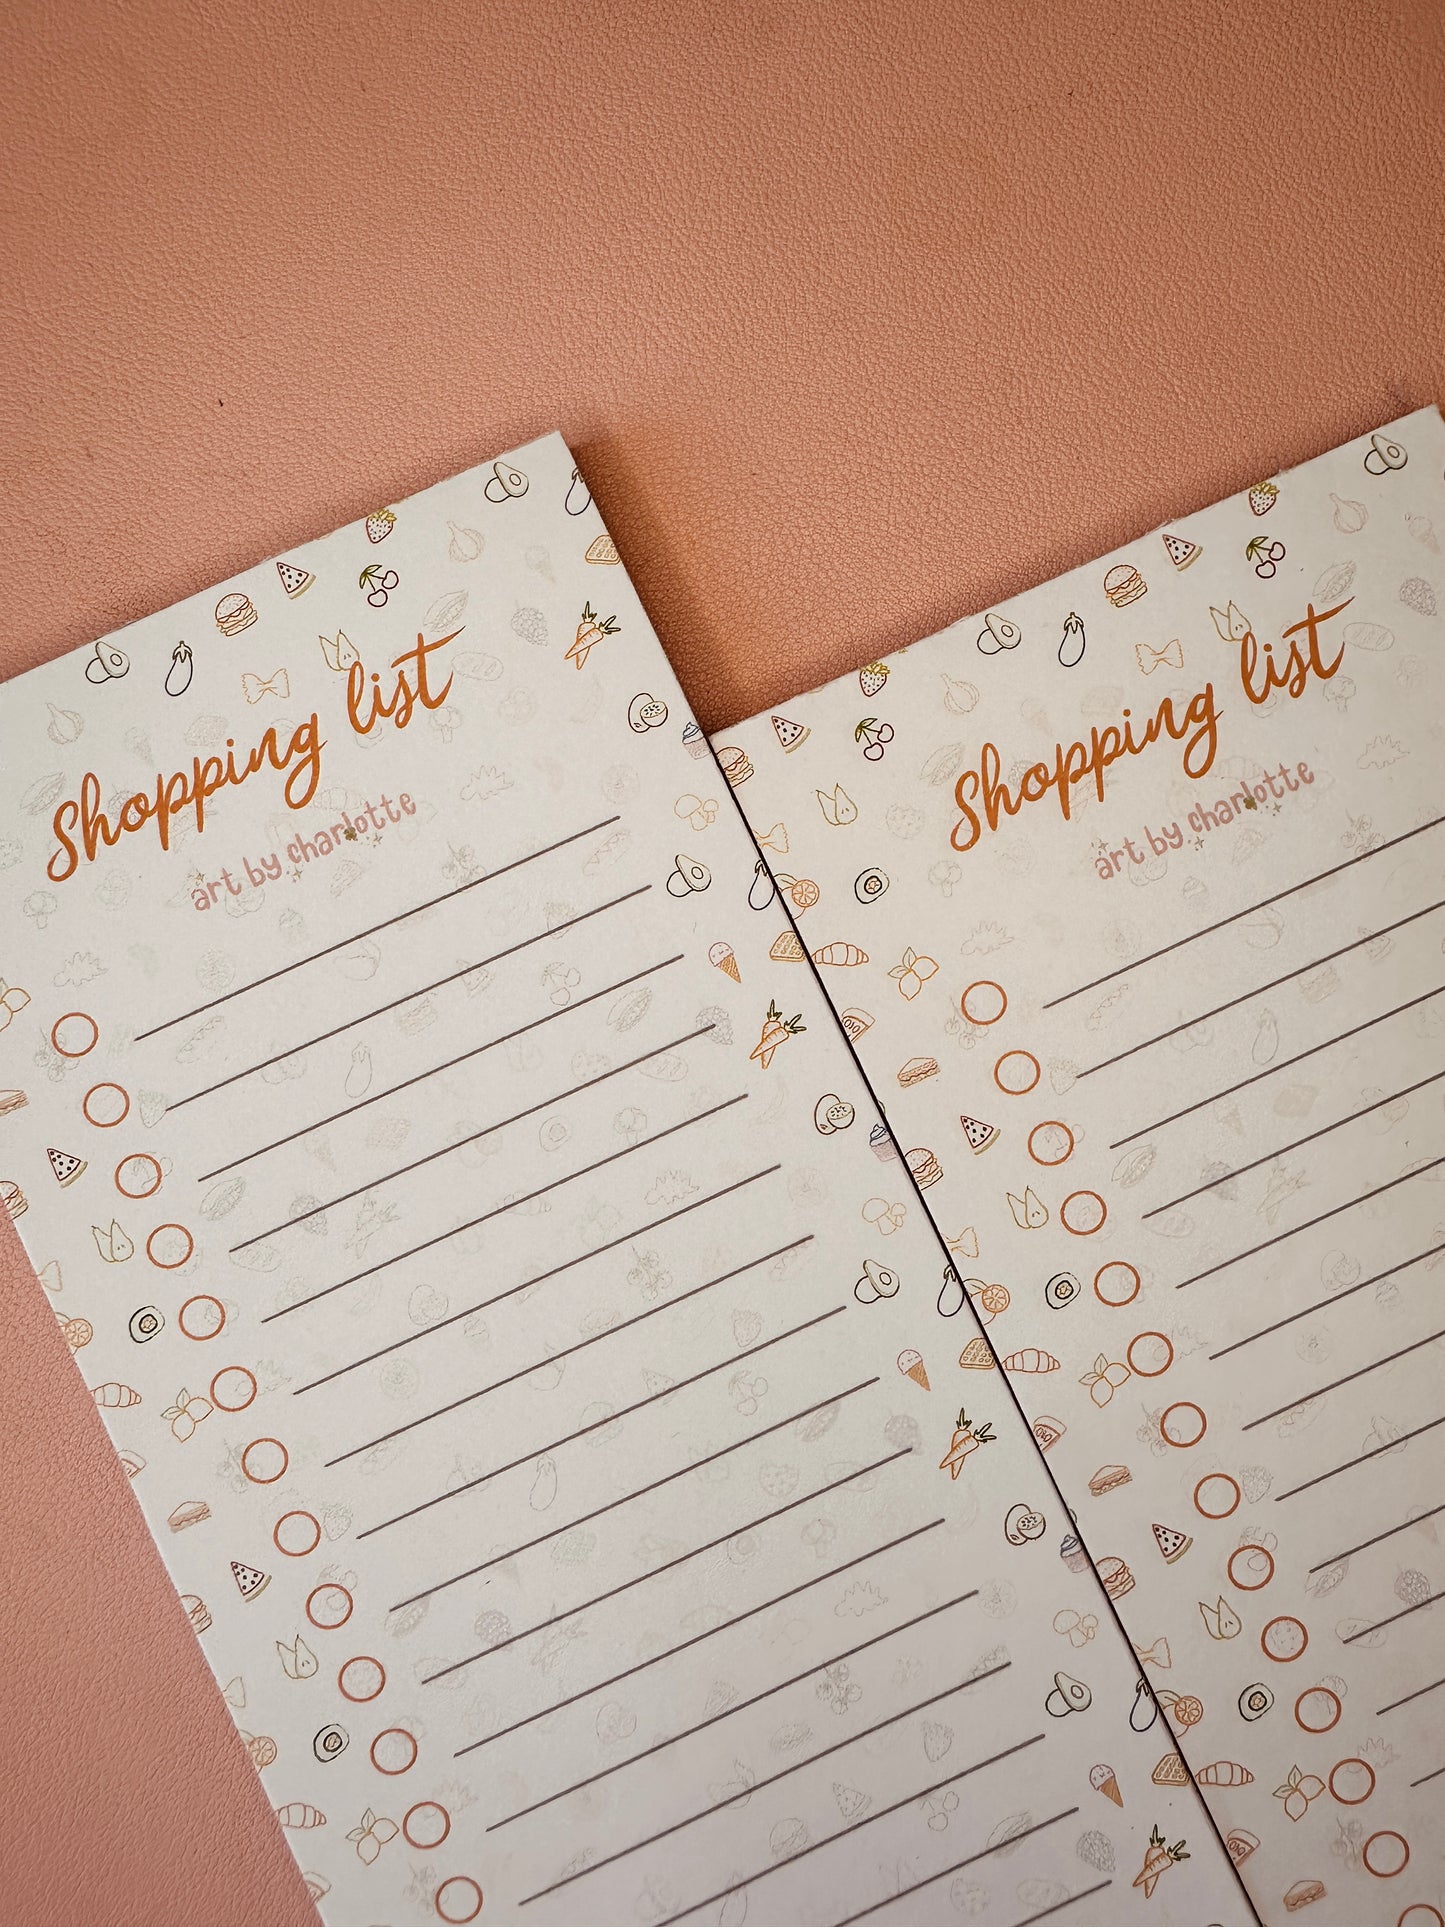 Shopping list
art by charlotte
Shopping list
art by charlotte